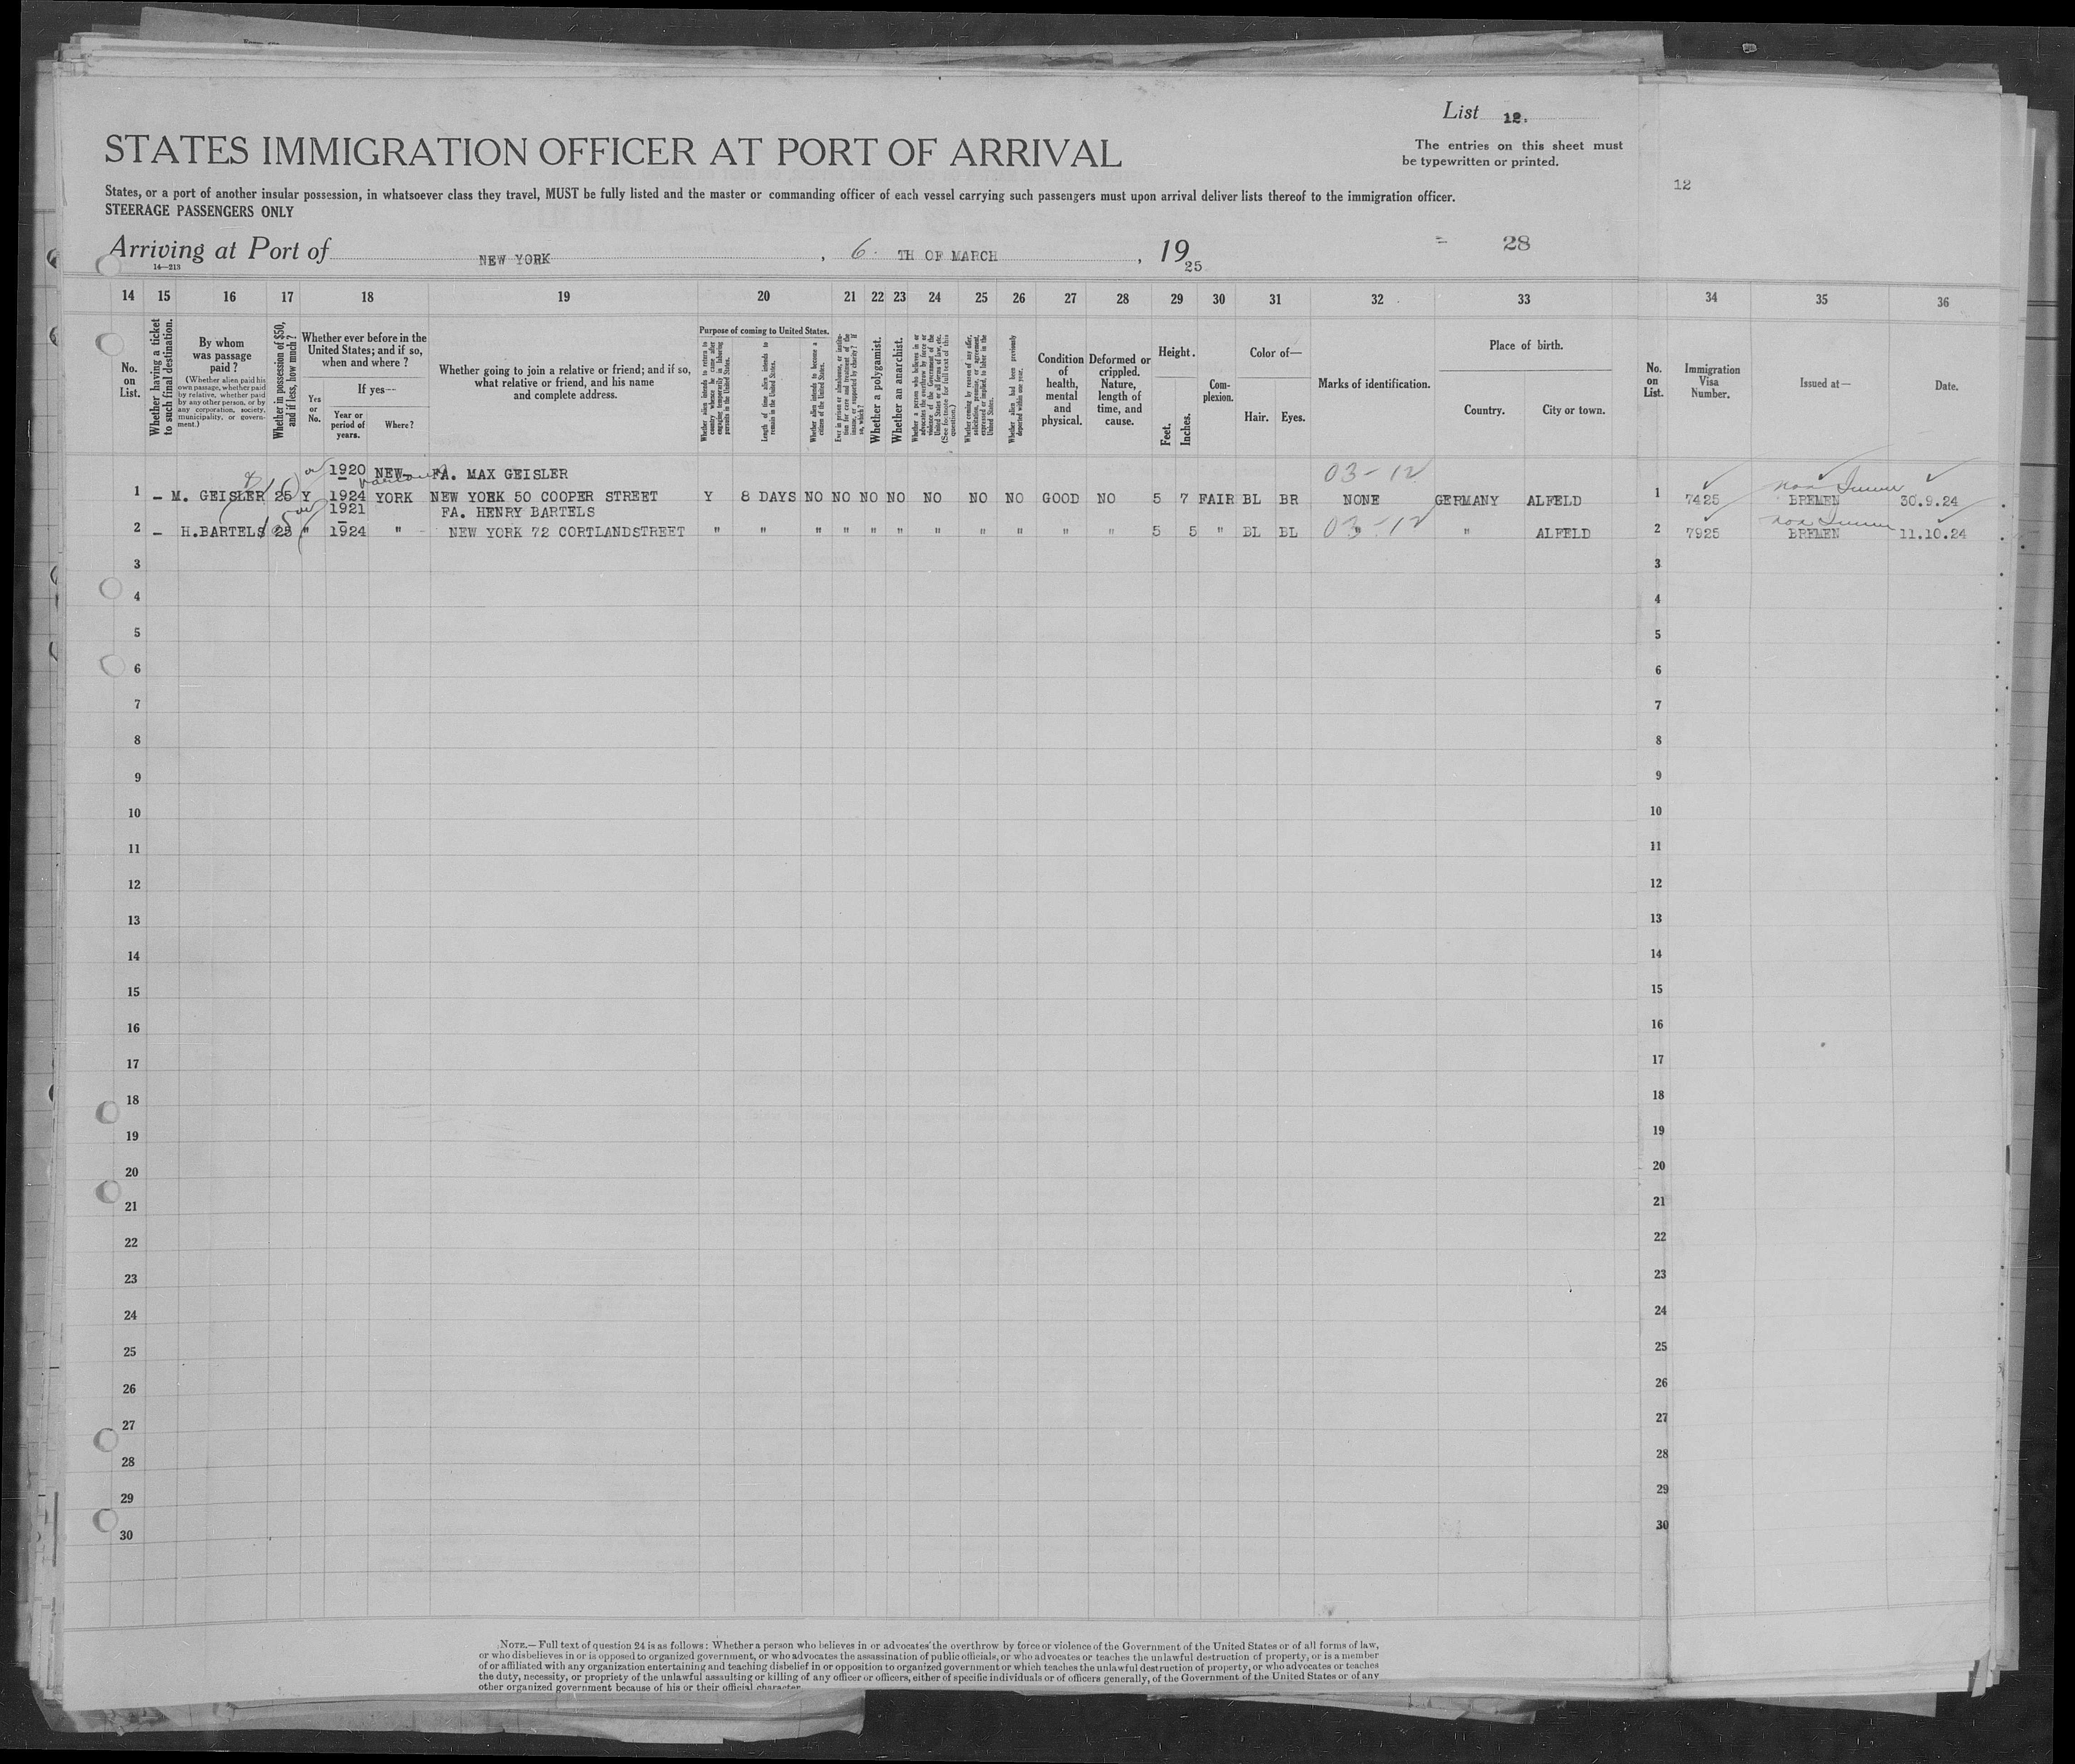 List 12.
STATES IMMIGRATION OFFICER AT PORT OF ARRIVAL
The entries on this sheet must
be typewritten or printed.
12
States, or a port of another insular possession, in whatsoever class they travel, MUST be fully listed and the master or commanding officer of each vessel carrying such passengers must upon arrival deliver lists thereof to the immigration officer.
STEERAGE PASSENGERS ONLY
Arriving at Port of NEW YORK, 6 TH OF MARCH, 1925
28
14—213
14 15 16 17 18 19 20 21 22 23 24 25 26 27 28 29 30 31 32 33 34 35 36
No. on List.
Whether having a ticket to such final destination.
By whom was passage paid?
(Whether alien paid his own passage, whether paid by relative, whether paid by any other person, or by any corporation, society, municipality, or government.)
Whether in possession of $50, and if less, how much?
Whether ever before in the United States; and if so, when and where?
Yes or No.
If yes—
Year or period of years.
Where?
Whether going to join a relative or friend; and if so, what relative or friend, and his name and complete address.
Purpose of coming to United States.
Whether alien intends to return to country whence he came after engaging temporarily in laboring pursuits in the United States.
Length of time alien intends to remain in the United States.
Whether alien intends to become a citizen of the United States.
Ever in prison or almshouse, or institution for care and treatment of the insane, or supported by charity? If so, which?
Whether a polygamist.
Whether an anarchist.
Whether a person who believes in or advocates the overthrow by force or violence of the Government of the United States or all forms of law, etc. (See footnote for full text of this question.)
Whether coming by reason of any offer, solicitation, promise, or agreement, expressed or implied, to labor in the United States.
Whether alien had been previously deported within one year.
Condition of health, mental and physical.
Deformed or crippled. Nature, length of time, and cause.
Height.
Feet.
Inches.
Complexion.
Color of—
Hair.
Eyes.
Marks of identification.
Place of birth.
Country.
City or town.
No. on List.
Immigration Visa Number.
Issued at—
Date.
1920 NEW FA. MAX GEISLER 03-12
1 – M. GEISLER 25 Y 1924 YORK NEW YORK 50 COOPER STREET Y 8 DAYS NO NO NO NO NO NO NO GOOD NO 5 7 FAIR BL BR NONE GERMANY ALFELD 1 7425 BREMEN 30.9.24
1921 FA. HENRY BARTELS
2 – H.BARTELS 25 " 1924 " NEW YORK 72 CORTLANDSTREET " " " " " " " " " " " 5 5 " BL BL " 03-12 " ALFELD 2 7925 BREMEN 11.10.24
3 3
4 4
5 5
6 6
7 7
8 8
9 9
10 10
11 11
12 12
13 13
14 14
15 15
16 16
17 17
18 18
19 19
20 20
21 21
22 22
23 23
24 24
25 25
26 26
27 27
28 28
29 29
30 30
NOTE.—Full text of question 24 is as follows: Whether a person who believes in or advocates the overthrow by force or violence of the Government of the United States or of all forms of law,
or who disbelieves in or is opposed to organized government, or who advocates the assassination of public officials, or who advocates or teaches the unlawful destruction of property, or is a member
of or affiliated with any organization entertaining and teaching disbelief in or opposition to organized government or which teaches the unlawful destruction of property, or who advocates or teaches
the duty, necessity, or propriety of the unlawful assaulting or killing of any officer or officers, either of specific individuals or of officers generally, of the Government of the United States or of any
other organized government because of his or their official character.